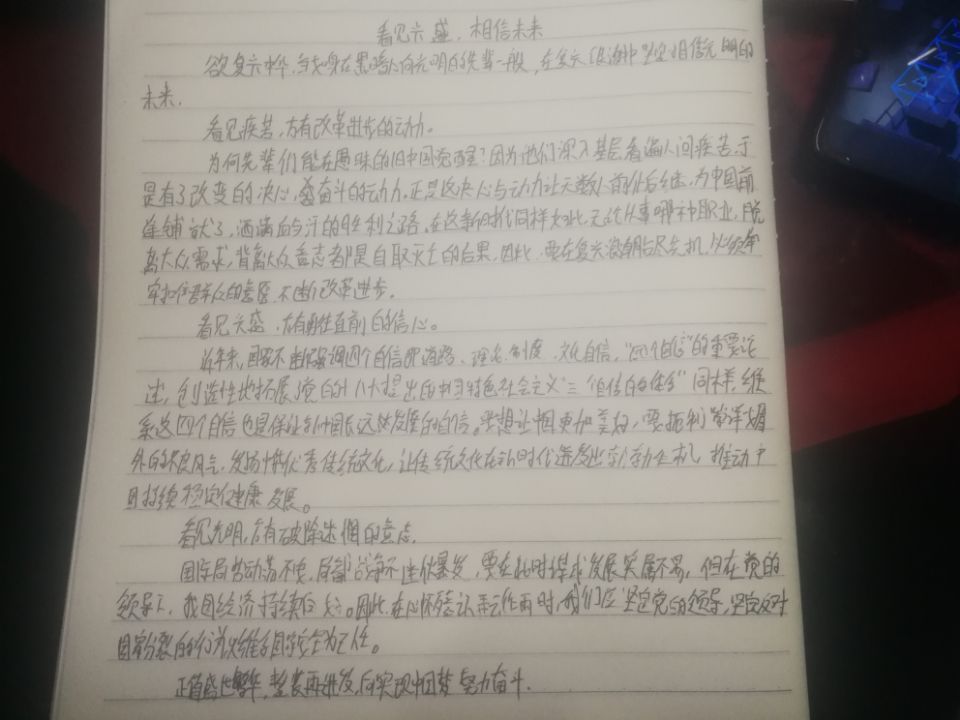 看见兴盛，相信未来
欲复兴中华，与身在黑暗心向光明的先辈一般，在复兴浪潮中坚定相信光明的
未来。
看见疾苦，方有改革进步的动力。
为何先辈们能在愚昧的旧中国觉醒？因为他们深入基层看遍人间疾苦于
是有了改变的决心，奋斗的动力，正是这决心与动力让无数人前仆后继，为中国前
途铺就了，洒满血与汗的胜利之路，在这新时代同样如此，无论从事哪种职业，脱
离大众需求，背离大众意志者都是自取灭亡的后果，因此，要在复兴浪潮占尽先机，必须牢
牢把住群众的意愿，不断改革进步。
看见兴盛，方有勇往直前的信心。
近年来，国家不断强调四个自信即道路、理论、制度、文化自信，“四个自信”的重要论
述，创造性地拓展了党的十八大提出的中国特色社会主义“三个自信的体系”同样，维
系这四个自信也是保证中国长远发展的自信。要想让中国更加美好，要扼制崇洋媚
外的不良风气，发扬中华优秀传统文化，让传统文化在新时代迸发出勃勃生机，推动中
国持续稳定健康发展。
看见光明，方有破除迷惘的意志。
国际局势动荡不安，局部战争不断爆发，要在此时谋求发展实属不易，但在党的
领导下，我国经济持续向好。因此，在心怀疑认 时，我们应坚定党的领导，坚定反对
国家分裂的行为以维护国家安全为己任。
正值盛世繁华，整装再进发，向实现中国梦努力奋斗.